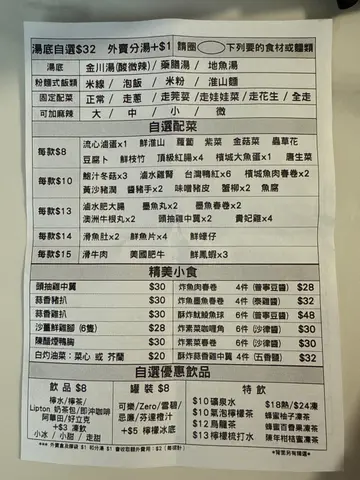 湯底自選$32 外賣分湯+$1 請圈 下列要的食材或麵類
湯底 金川湯(酸微辣) / 藥膳湯 / 地魚湯
粉麵式飯類 米線 / 泡飯 / 米粉 / 淮山麵
固定配菜 正常 / 走蔥 / 走芫荽 / 走娃娃菜 / 走花生 / 全走
可加麻辣 大 / 中 / 小 / 微
自選配菜
每款$8 流心滷蛋x1 鮮淮山 蘿蔔 紫菜 金菇菜 蟲草花
豆腐卜 鮮枝竹 頂級紅腸x4 檳城大魚蛋x1 唐生菜
每款$10 鮑汁冬菇x3 滷水雞腎 台灣鴨紅x6 檳城魚肉春卷x2
黃沙豬潤 醬豬手x2 味噌豬皮 蟹柳x2 魚腐
每款$13 滷水肥大腸 墨魚丸x2 墨魚春卷x2
澳洲牛根丸x2 頭抽雞中翼x2 貴妃雞x4
每款$14 滑魚肚x2 鮮魚片x4 鮮蠔仔
每款$15 滑牛肉 美國肥牛 鮮鳳蝦x3
精美小食
頭抽雞中翼 $30 炸魚肉春卷 4件 (普寧豆醬) $28
蒜香豬扒 $30 炸魚墨魚春卷 4件 (泰雞醬) $32
蒜香雞扒 $30 酥炸魷鮭魚球 6件 (普寧豆醬) $48
沙薑鮮雞腳 (6隻) $28 炸素菜咖喱角 6件 (沙律醬) $30
陳醋煙鴨胸 $30 炸素菜春卷 6件 (沙律醬) $30
白灼油菜：菜心 或 芥蘭 $20 酥炸蒜香雞中翼 4件 (五香鹽) $32
自選優惠飲品
飲品 $8 罐裝 $8 特飲
檸水/檸茶/
Lipton 奶茶包/即沖咖啡
阿華田/好立克
+$3 凍飲
小冰 / 小甜 / 走甜
可樂/Zero/雪碧/
忌廉/芬達橙汁
+$5 檸檬冰底
$10 礦泉水
$10 氣泡檸檬茶
$12 烏龍茶
$13 檸檬梳打水
$18熱/$24凍
蜂蜜柚子凍茶
蜂蜜百香果凍茶
陳年柑桔蜜凍茶